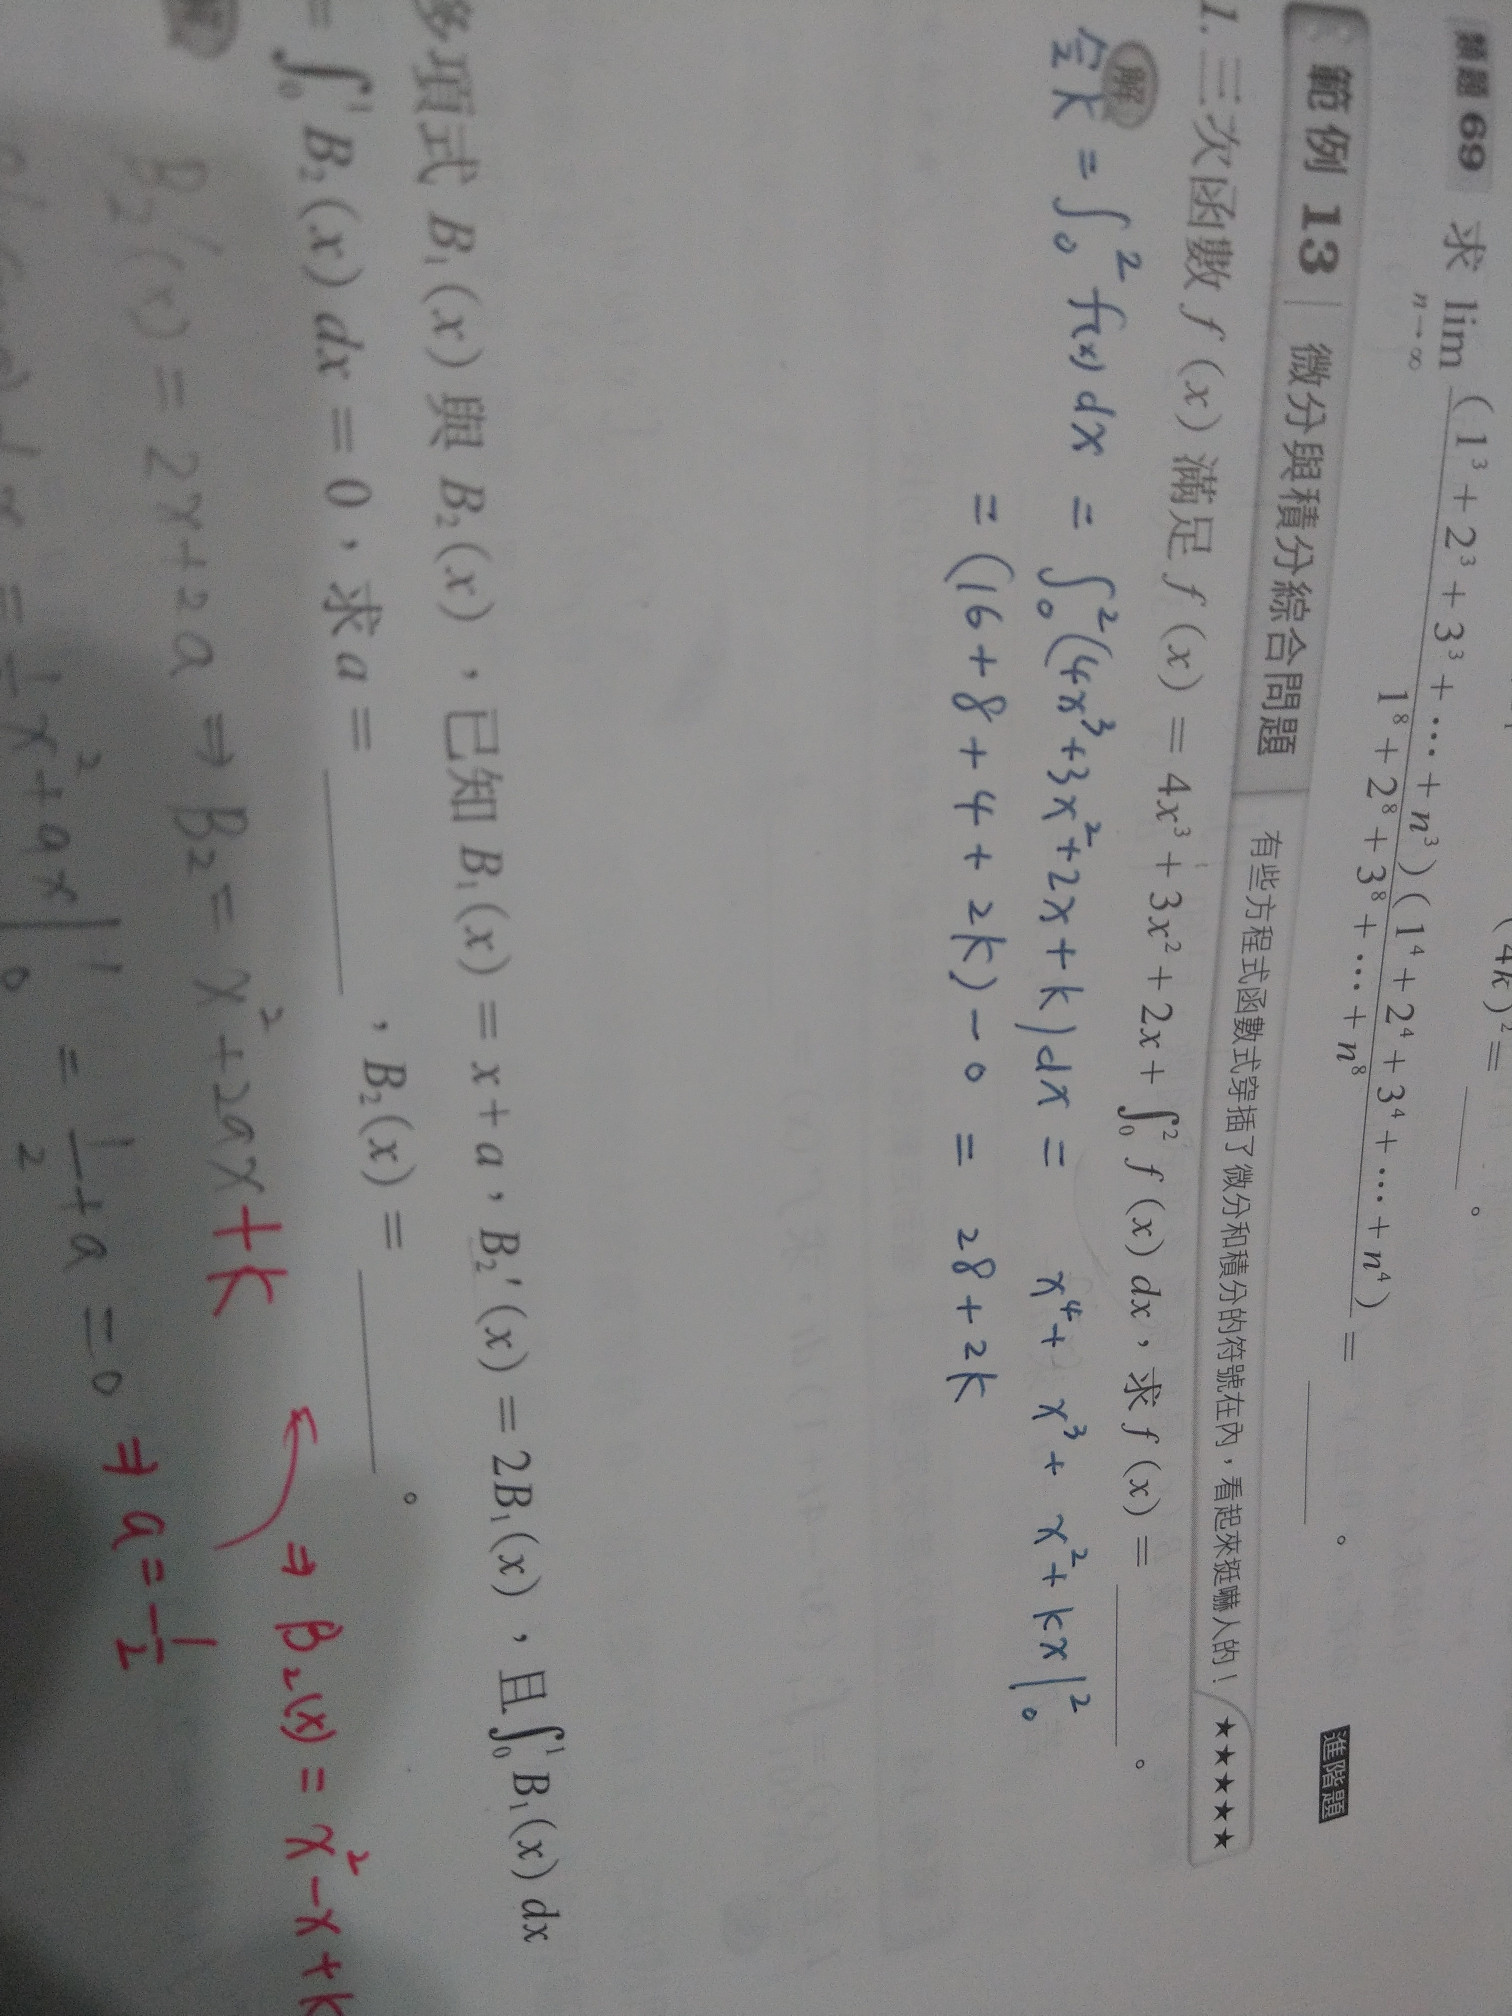 (4k)² = ____。
類題 69 求 lim n→∞ (1³+2³+3³+…+n³)(1⁴+2⁴+3⁴+…+n⁴) / 1⁸+2⁸+3⁸+…+n⁸ = ____。
進階題
範例 13 微分與積分綜合問題 有些方程式函數式穿插了微分和積分的符號在內，看起來挺嚇人的！ ★★★★★
1. 三次函數 f(x) 滿足 f(x) = 4x³+3x²+2x+∫₀² f(x)dx，求 f(x) = ____。
解
令 k = ∫₀² f(x)dx = ∫₀² (4x³+3x²+2x+k)dx = x⁴+x³+x²+kx|₀²
= (16+8+4+2k)-0 = 28+2k
多項式 B₁(x) 與 B₂(x)，已知 B₁(x) = x+a，B₂'(x) = 2B₁(x)，且∫₀¹ B₁(x)dx
= ∫₀¹ B₂(x)dx = 0，求 a = ____，B₂(x) = ____。
⇒ B₂(x) = x²-x+k
B₂'(x) = 2x+2a ⇒ B₂ = x²+2ax+k
= 1/2 x²+ax|₀¹ = 1/2+a = 0 ⇒ a = -1/2